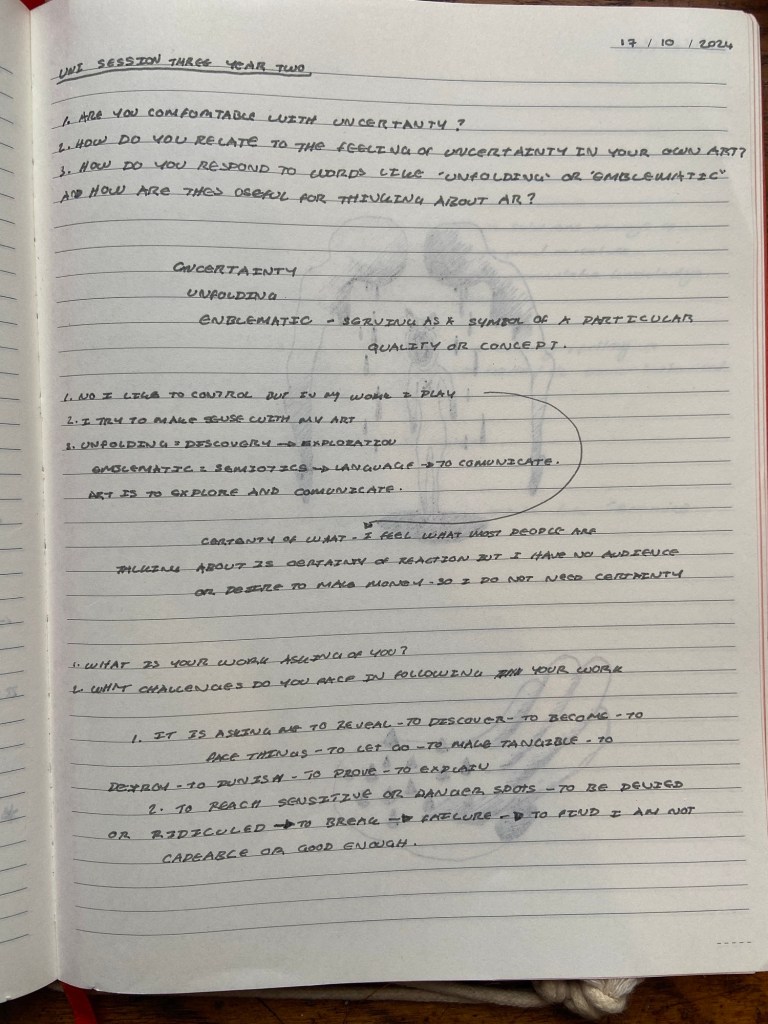 17 / 10 / 2024
UNI SESSION THREE YEAR TWO
1. ARE YOU COMFORTABLE WITH UNCERTANTY?
2. HOW DO YOU RELATE TO THE FEELING OF UNCERTAINTY IN YOUR OWN ART?
3. HOW DO YOU RESPOND TO WORDS LIKE "UNFOLDING" OR "EMBLEMATIC"
AND HOW ARE THES USEFUL FOR THINKING ABOUT AR?
UNCERTAINTY
UNFOLDING
ENBLEMATIC - SERVING AS A SYMBOL OF A PARTICULAR
QUALITY OR CONCEPT.
1. NO I LIKE TO CONTROL BUT IN MY WORK I PLAY
2. I TRY TO MAKE SENSE WITH MY ART
3. UNFOLDING = DISCOVERY → EXPLORATION
EMBLEMATIC = SEMIOTICS → LANGUAGE → TO COMUNICATE.
ART IS TO EXPLORE AND COMUNICATE.
CERTENTY OF WHAT - I FEEL WHAT MOST PEOPLE ARE
TALKING ABOUT IS CERTAINTY OF REACTION BUT I HAVE NO AUDIENCE
OR DESIRE TO MAKE MONEY - SO I DO NOT NEED CERTAINTY
1. WHAT IS YOUR WORK ASKING OF YOU?
2. WHAT CHALLENGES DO YOU FACE IN FOLLOWING YOUR WORK
1. IT IS ASKING ME TO REVEAL - TO DISCOVER - TO BECOME - TO
FACE THINGS - TO LET GO - TO MAKE TANGIBLE - TO
DEXTROY - TO PUNISH - TO PROVE - TO EXPLAIN
2. TO REACH SENSITIVE OR DANGER SPOTS - TO BE DENIED
OR RIDICULED → TO BREAK → FAILURE → TO FIND I AM NOT
CAPEABLE OR GOOD ENOUGH.